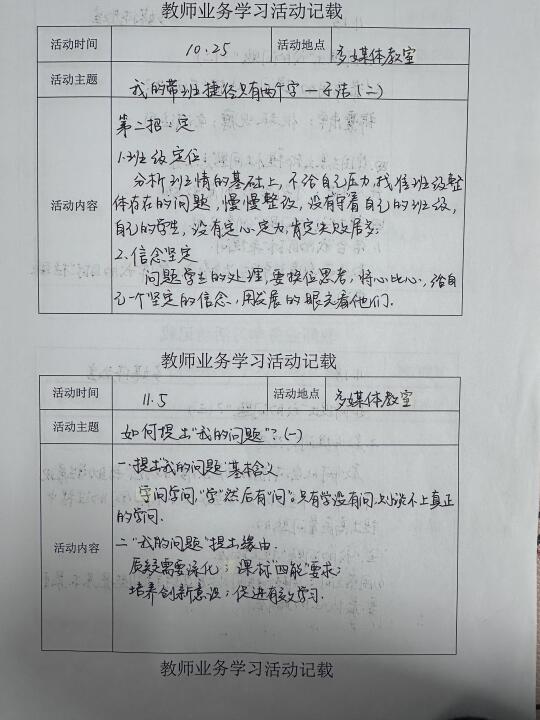 教师业务学习活动记载
活动时间 10.25 活动地点 多媒体教室
活动主题 我的带班捷径只有两个字—子活(二)
活动内容
第二招:定
1.班级定位
分析班情的基础上,不给自己压力,找准班级整
体存在的问题,慢慢整改,没有守着自己的班级,
自己的学生,没有定心定力,肯定失败居多.
2.信念坚定
问题学生的处理,要换位思考,将心比心,给自
己一个坚定的信念,用发展的眼光看他们.
教师业务学习活动记载
活动时间 11.5 活动地点 多媒体教室
活动主题 如何提出"我的问题"?(一)
活动内容
一.提出"我的问题"基本含义
学问学问,"学"然后有"问"。只有学没有问,划谈不上真正
的学问.
二."我的问题"提出缘由.
质疑需要深化; 课标"四能"要求;
培养创新意识;促进有效学习.
教师业务学习活动记载